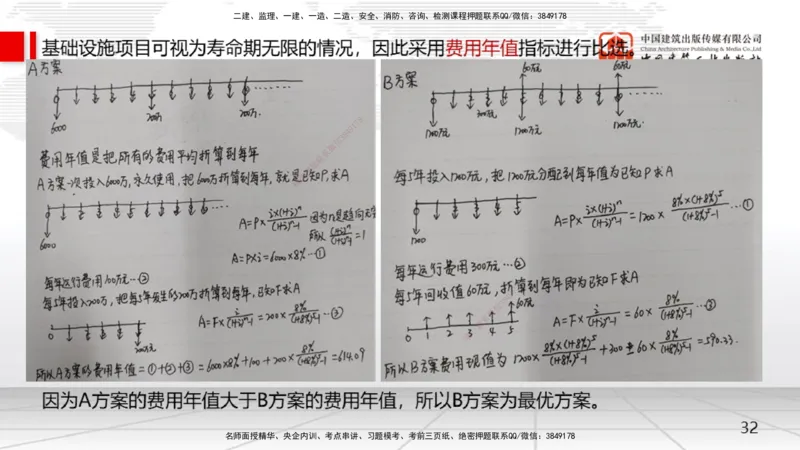 二建、监理、一建、一造、二造、安全、消防、咨询、检测课程押题联系QQ/微信：3849178
基础设施项目可视为寿命期无限的情况，因此采用费用年值指标进行比选。
中国建筑出版传媒有限公司
China Architecture Publishing & Media Co.,Ltd
A方案
6000
200万
200万.
费用年值是把所有的费用平均折算到每年
A方案一次投入6000万，永久使用，把6000万折算到每年，就是已知P，求A
6000
A=P×i×(1+i)^n/(1+i)^n-1 因为n是趋向无穷
所以 (1+i)^n/(1+i)^n-1=1
A=P×i=6000×8%…①
每年运行费用100万元…②
每5年投入200万，把每5年发生的200万折算到每年，已知F求A
0
200万元
A=F×i/(1+i)^n-1=200×8%/(1+8%)^5-1…③
所以A方案的费用年值=①+②+③=6000×8%+100+200×8%/(1+8%)^5-1=614.09
B方案
60万元
60万元
300万元
1200万元
1200万元
1200万元.
每5年投入1200万元，把1200万元分配到每年值为已知P求A
1200
A=P×i×(1+i)^n/(1+i)^n-1=1200×8%×(1+8%)^5/(1+8%)^5-1…①
每年运行费用300万元…②
每5年回收值60万元，折算到每年即为已知F求A
60万元
0 1 2 3 4 5
A=F×i/(1+i)^n-1=60×8%/(1+8%)^5-1…③
所以B方案费用现值为 1200×8%×(1+8%)^5/(1+8%)^5-1+300-60×8%/(1+8%)^5-1=590.33.
因为A方案的费用年值大于B方案的费用年值，所以B方案为最优方案。
32
名师面授精华、央企内训、考点串讲、习题模考、考前三页纸、绝密押题联系QQ/微信：3849178